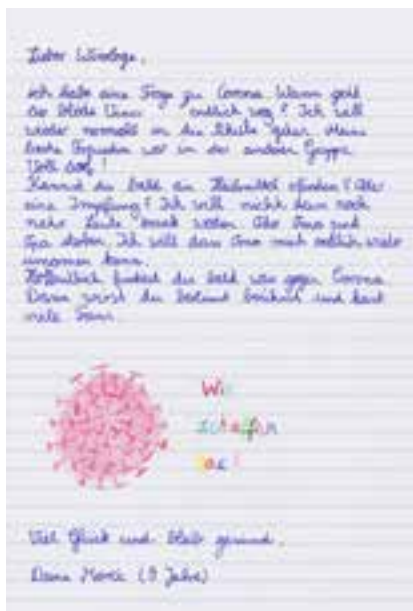 Lieber Virologe,
ich habe eine Frage zu Corona. Wann geht
der blöde Virus endlich weg? Ich will
wieder normal in die Schule gehen. Meine
beste Freundin war in der anderen Gruppe.
Voll
Kannst du bald ein Heilmittel erfinden? Oder
eine Impfung? Ich will nicht dass noch
mehr Leute krank werden. Oder Oma und
Opa sterben. Ich will dass Oma mich endlich wieder
umarmen kann.
Hoffentlich findest du bald was gegen Corona.
Dann wirst du bestimmt berühmt und hast
viele Fans.
Wir
schaffen
das!
Viel Glück und bleib gesund.
Deine (9 Jahre)